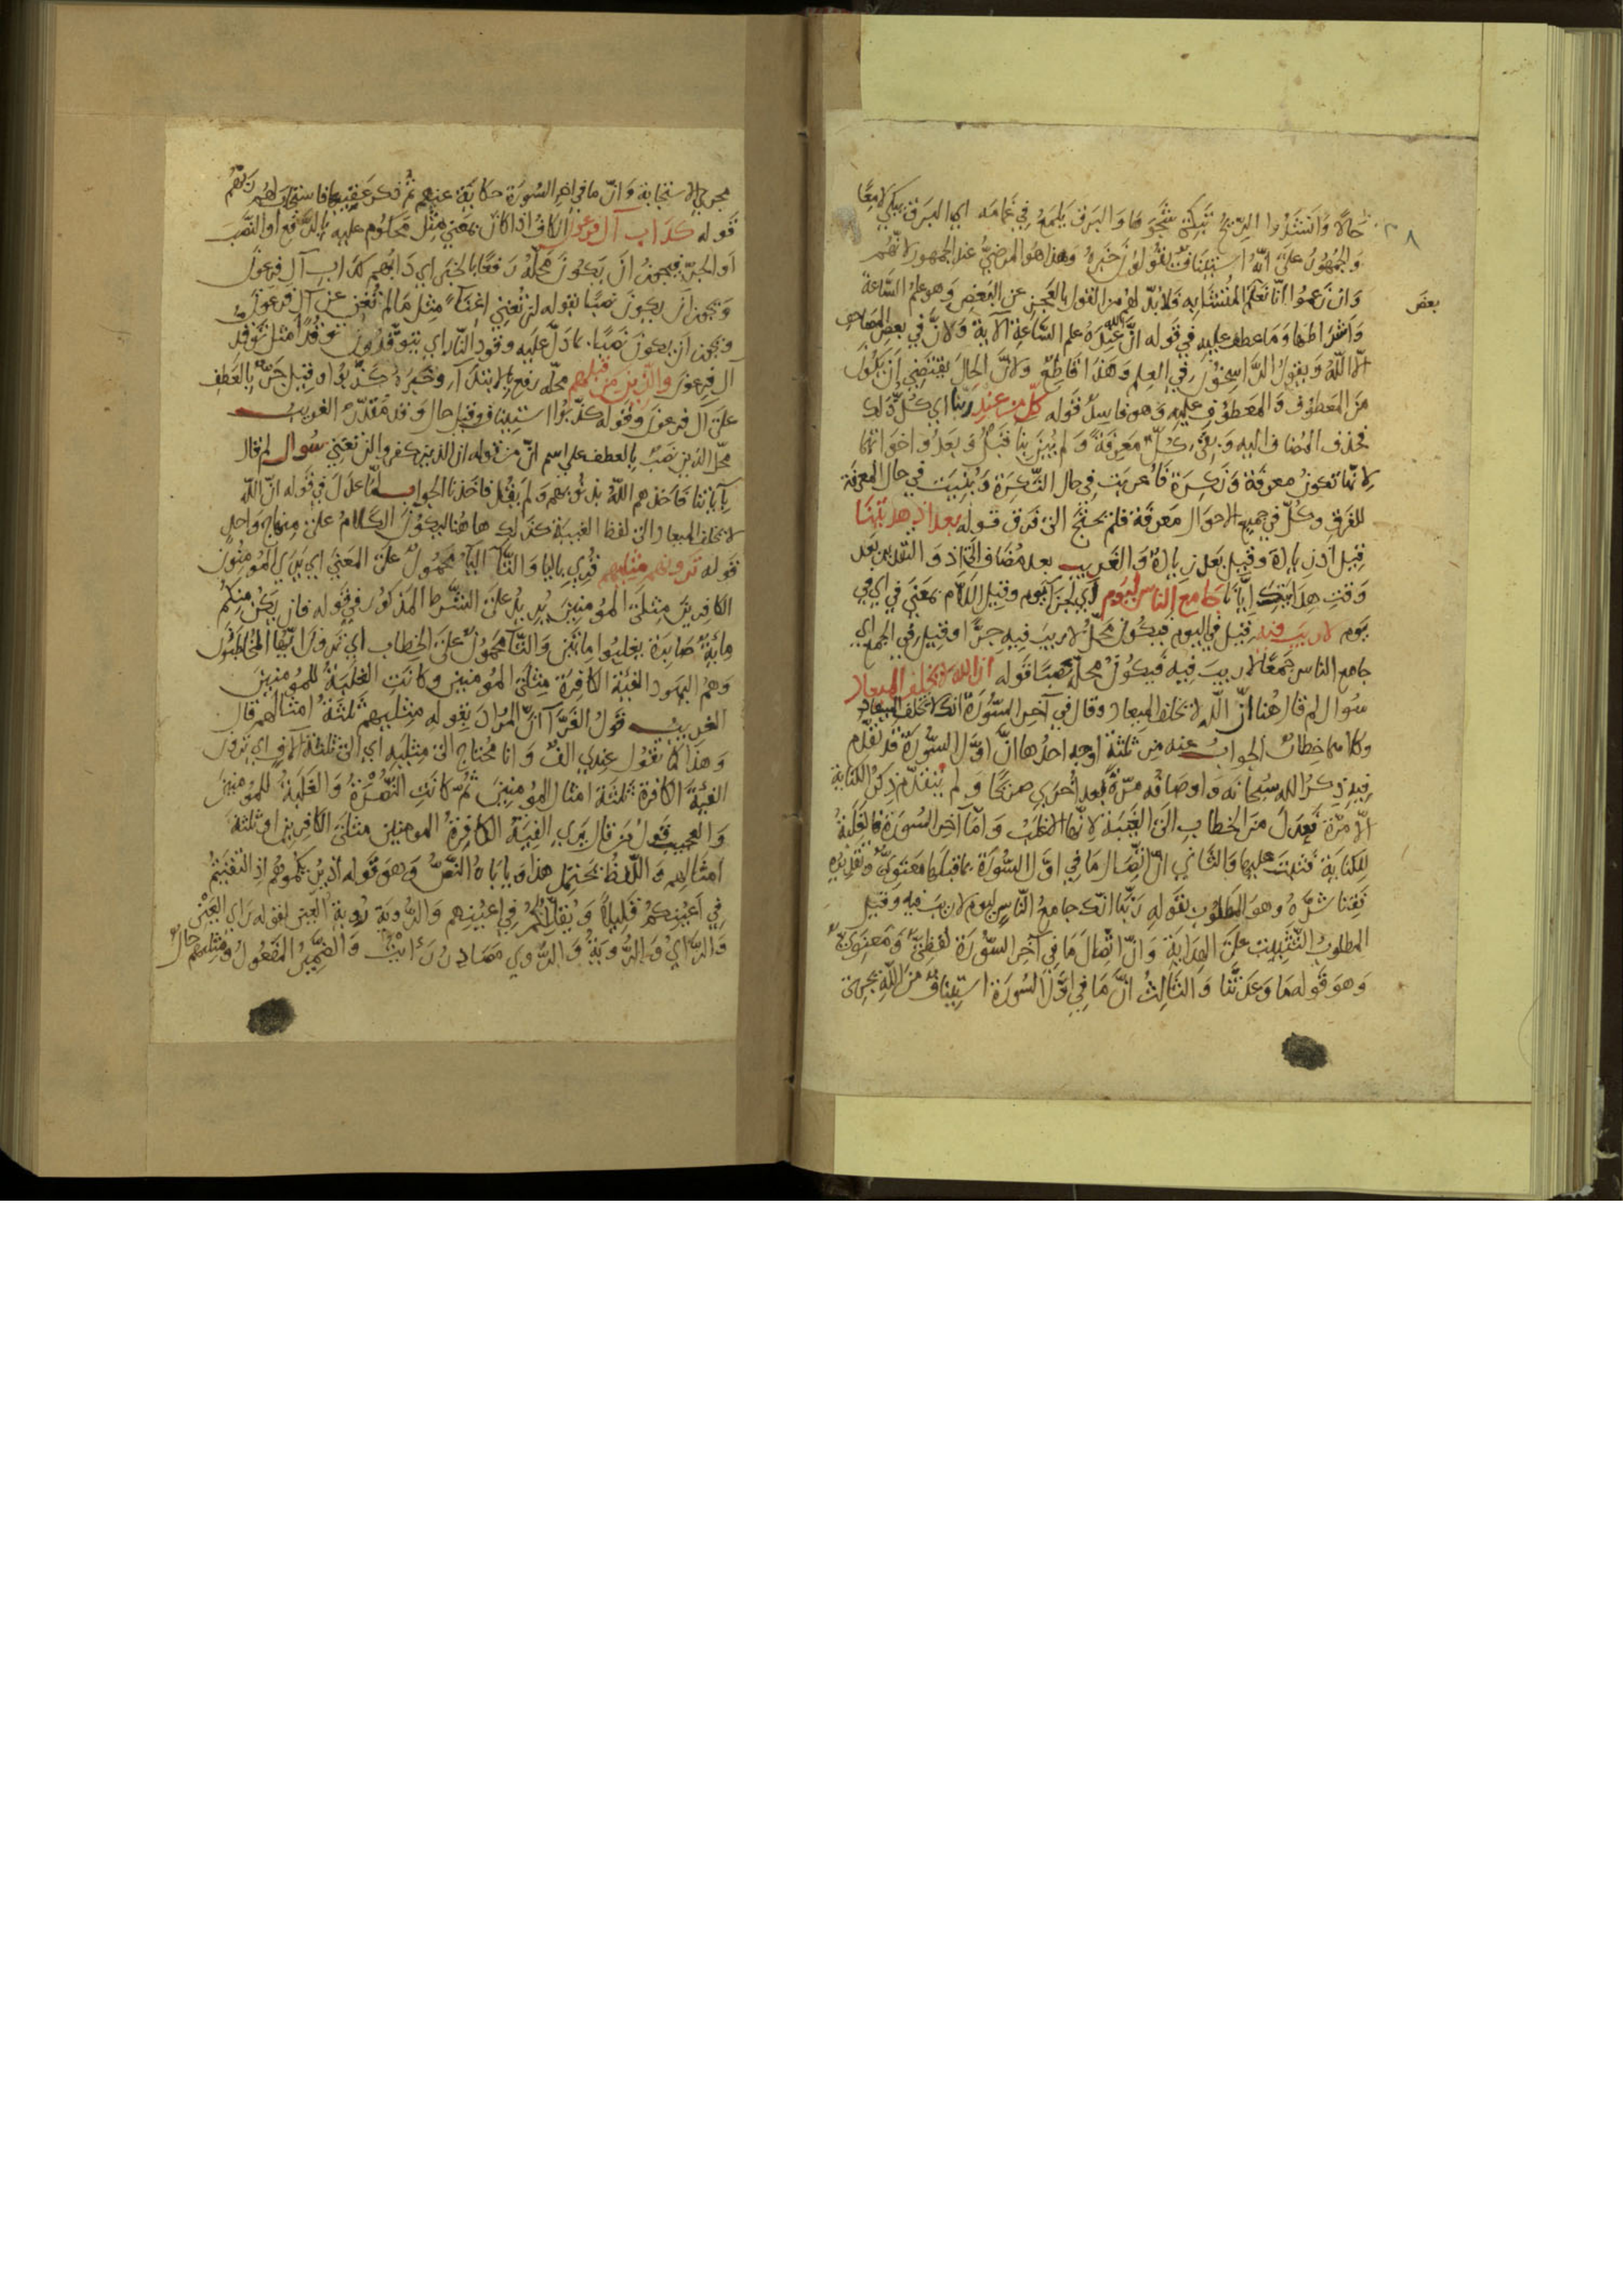 حالا وانشدوا الريح تبكي شجوها والبرق يلمع في غمامه اي البرق يبكي لامعا
والجمهور على انه استيناف يقولون خبره وهذا هو المرضي عند الجمهور لانهم
وان زعموا انا نعلم المتشابه فلا بد لهم من القول بالعجز عن البعض وهو علم الساعة
بعض
واشراطها وما عطف عليه في قوله ان الله عنده علم الساعة الآية ولان في بعض المصاحف
الا الله ويقول الراسخون في العلم وهذا قاطع ولان الحال يقتضي ان يكون
من المعطوف والمعطوف عليه وهو فاسد قوله كل من عند ربنا اي كل ذلك
فحذف المضاف اليه وبقي كل معرفة ولم يبن بنا قبل وبعد واخواتها
لانها تكون معرفة ونكرة فاعربت في حال النكرة وبنيت في حال المعرفة
للفرق وكل في جميع الاحوال معرفة فلم يحتج الى فرق قوله بعد اذ هديتنا
قيل اذ زيادة وقيل بعد زيادة والغريب بعد مضاف الى اذ والتقدير بعد
وقت هدايتك ايانا جامع الناس ليوم اي لجزا يوم وقيل اللام بمعنى في اي في
يوم لا ريب فيه قيل في اليوم فيكون محل لا ريب فيه جرا وقيل في الجمع اي
جامع الناس جمعا لا ريب فيه فيكون محله نصبا قوله ان الله لا يخلف الميعاد
سوال لم قال هنا ان الله لا يخلف الميعاد وقال في آخر السورة انك لا تخلف الميعاد
وكلاهما خطاب الجواب عنه من ثلثة اوجه احدها ان اول السورة قد تقدم
فيه ذكر الله سبحانه واوصافه مرة بعد اخرى صريحا ولم يتقدم ذكر الكناية
الا مرة فعدل من الخطاب الى الغيبة لانها اغلب واما آخر السورة فالغلبة
للكناية فثبت عليها والثاني ان اتصال ما في اول السورة بما قبلها معنوي وتقديره
فقنا شره وهو المطلوب بقوله ربنا انك جامع الناس ليوم لا ريب فيه وقيل
المطلوب التثبيت على الهداية وان اتصال ما في آخر السورة لفظي ومعنوي
وهو قوله ما وعدتنا والثالث ان ما في اول السورة استيناف من الله يجري
مجرى الاستجابة وان ما في آخر السورة حكاية عنهم ثم ذكر عقيبها فاستجاب لهم ربهم
قوله كداب آل فرعون الكاف اذا كان بمعنى مثل محكوم عليه بالرفع او النصب
او الجر فيجوز ان يكون محله رفعا بالخبر اي دابهم كداب آل فرعون
ويجوز ان يكون نصبا بقوله لن تغني اغناء مثل ما لم تغن عن آل فرعون
ويجوز ان يكون نصبا بما دل عليه وقود النار اي يتوقدون توقدا مثل توقد
آل فرعون والذين من قبلهم محله رفع بالابتدآ وخبره كذبوا وقيل جر بالعطف
على آل فرعون وقوله كذبوا استيناف وقيل حال وقد مقدر الغريب
محل الذين نصب بالعطف على اسم ان من قوله ان الذين كفروا لن تغني سوال لم قال
بآياتنا فاخذهم الله بذنوبهم ولم يقل فاخذنا الجواب لما عدل في قوله ان الله
لا يخلف الميعاد الى لفظ الغيبة كذلك هاهنا ليكون الكلام على منهاج واحد
قوله ترونهم مثليهم قرى باليا والتا اليا محمول على المعنى اي يرى المومنون
الكافرين مثلى المومنين يدل على الشرط المذكور في قوله فان يكن منكم
ماية صابرة يغلبوا مايتين والتا محمول على الخطاب اي ترون ايها المخاطبون
وهم اليهود الفئة الكافرة مثلى المومنين وكانت الغلبة للمومنين
الغريب قول الفرآ ان المراد بقوله مثليهم ثلثة امثالهم قال
وهذا كما تقول عندي الف وانا محتاج الى مثليه اي الى ثلثة الاف اي ترون
الفئة الكافرة ثلثة امثال المومنين ثم كانت النصرة والغلبة للمومنين
والعجيب قول من قال يرى الفئة الكافرة المومنين مثلى الكافرين او ثلثة
امثالهم واللفظ يحتمل هذا ويأباه النص وهو قوله اذ يريكموهم اذ التقيتم
في اعينكم قليلا ويقللكم في اعينهم والروية روية العين لقوله راي العين
والراي والروية والروي مصادر رايت والضمير المفعول ومثليهم حال